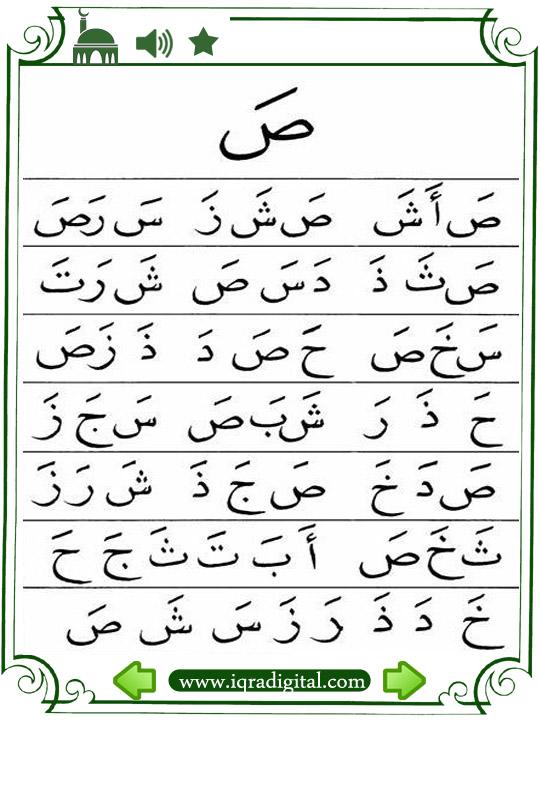 صَ
صَ أَ شَ صَ شَ زَ سَ رَ صَ
صَ ثَ ذَ دَ سَ صَ شَ رَ تَ
سَ خَ صَ حَ صَ دَ ذَ زَ صَ
حَ ذَ رَ شَ بَ صَ سَ جَ زَ
صَ دَ خَ صَ جَ ذَ شَ رَ زَ
ثَ خَ صَ أَ بَ تَ ثَ جَ حَ
خَ دَ ذَ رَ زَ سَ شَ صَ
www.iqradigital.com